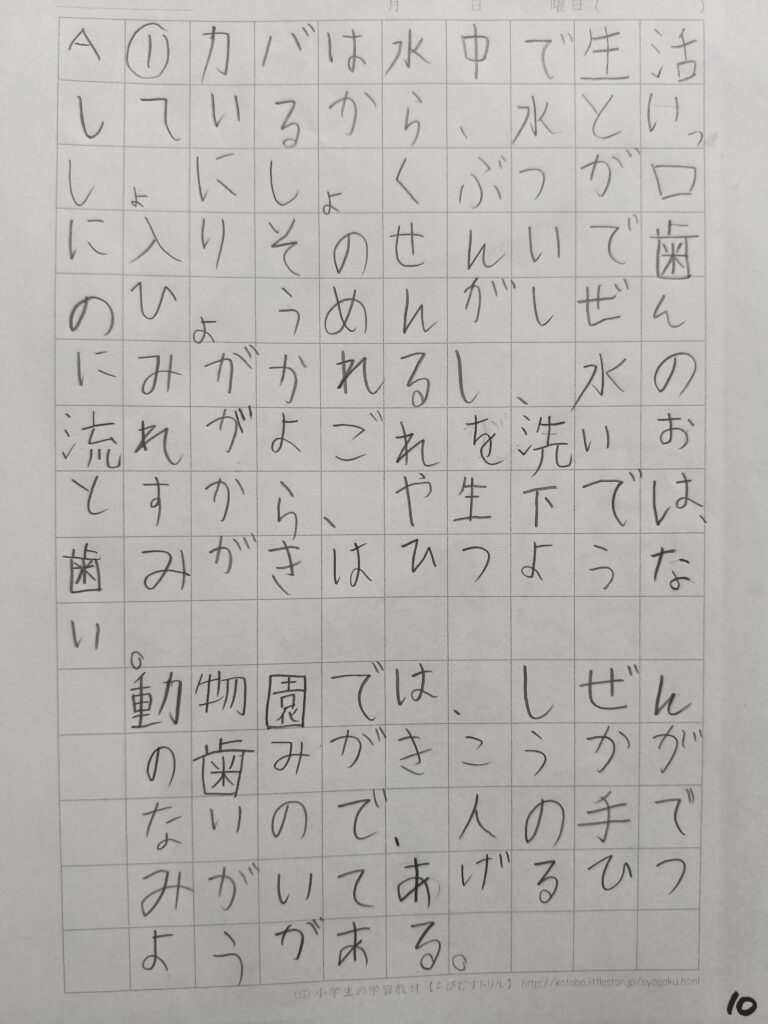 月 日 曜日( )
A①カバは水中で生活
しているから、水といっ
しょにしょくぶつが口
に入りそのせんいで歯
のひょうめんがしぜん
にみがかれるし、水の
流れがよごれを洗いお
とすから、や生下では、
歯みがきはひつような
い。
動物園では、しぜん
の歯みがきこうかが
ないので、人の手で
みがいてあげるひつ
ようがある。
(C)小学生の学習教材【ちびむすドリル】 http://kotoba.littlestar.jp/syogaku.html
10